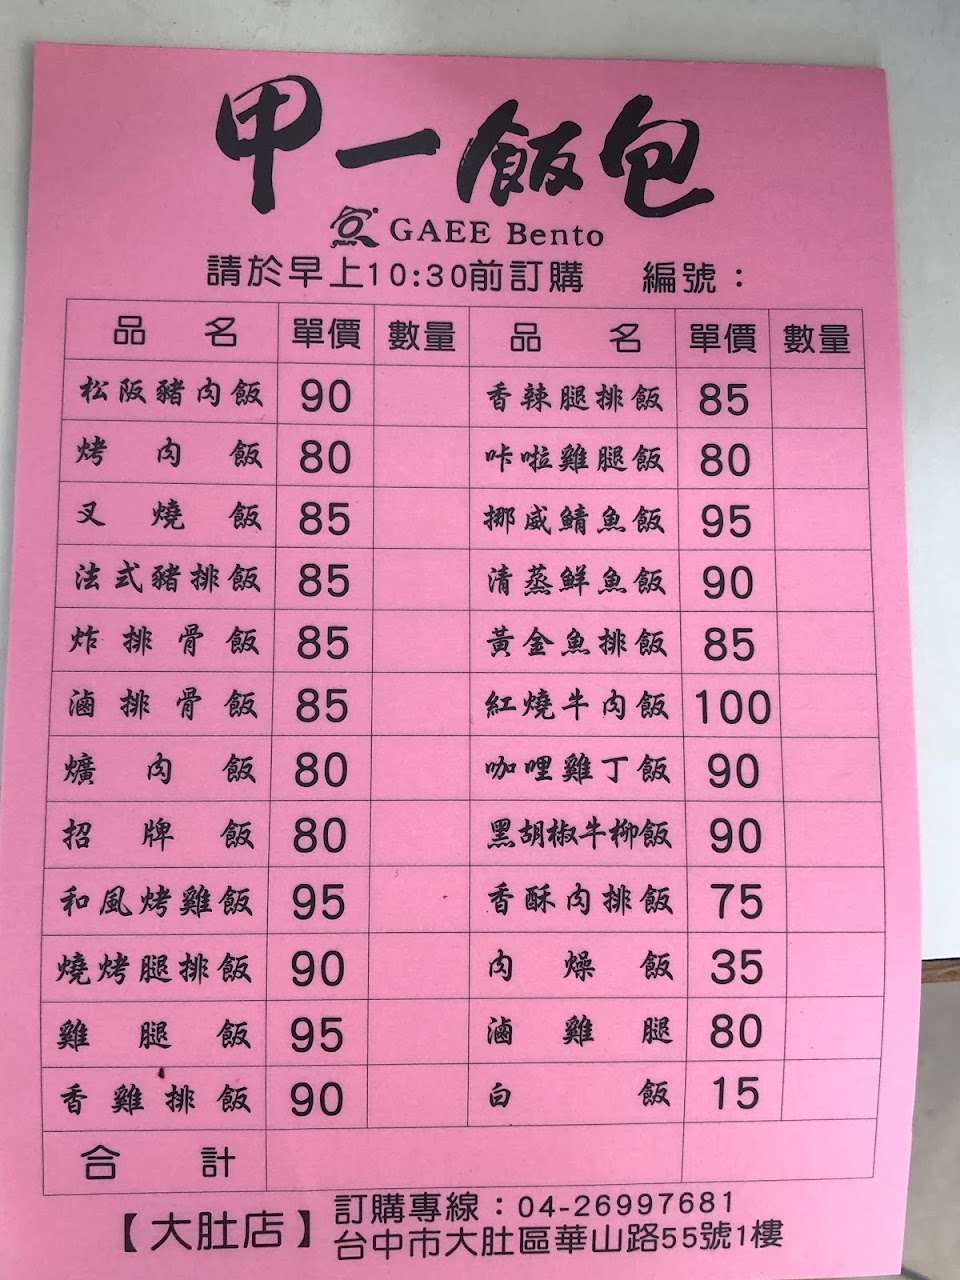 甲一飯包
GAEE Bento
請於早上10:30前訂購 編號：
品名 單價 數量 品名 單價 數量
松阪豬肉飯 90 香辣腿排飯 85
烤肉飯 80 咔啦雞腿飯 80
叉燒飯 85 挪威鯖魚飯 95
法式豬排飯 85 清蒸鮮魚飯 90
炸排骨飯 85 黃金魚排飯 85
滷排骨飯 85 紅燒牛肉飯 100
爌肉飯 80 咖哩雞丁飯 90
招牌飯 80 黑胡椒牛柳飯 90
和風烤雞飯 95 香酥肉排飯 75
燒烤腿排飯 90 肉燥飯 35
雞腿飯 95 滷雞腿 80
香雞排飯 90 白飯 15
合計
【大肚店】
訂購專線：04-26997681
台中市大肚區華山路55號1樓